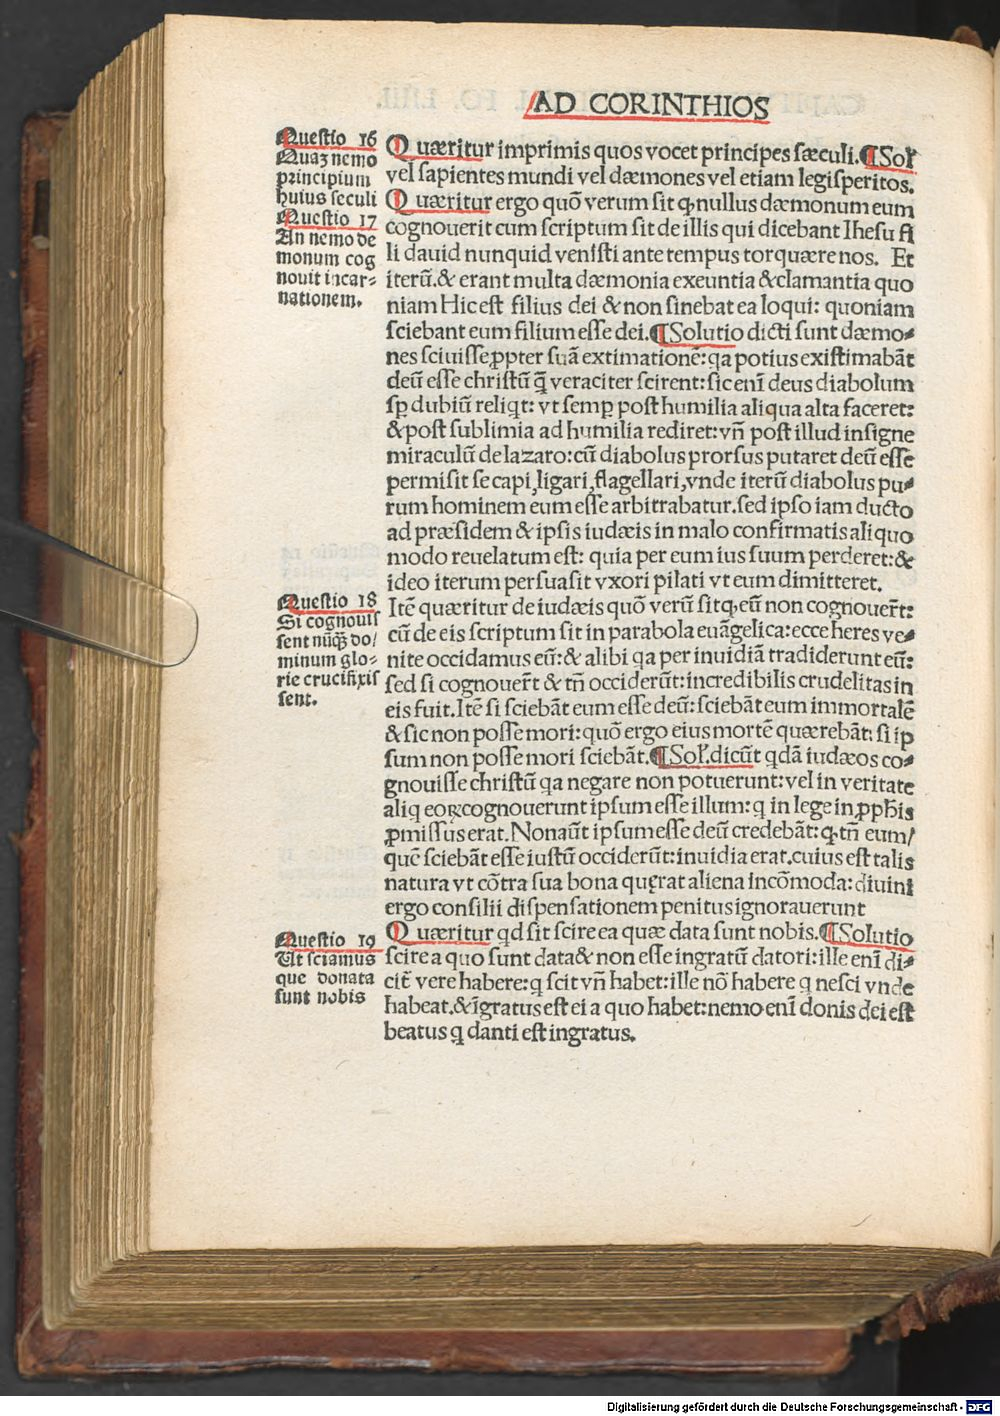 AD CORINTHIOS
Questio 16
Quaʒ nemo
principium
huius seculi
Questio 17
An nemo de
monum cog
nouit incar⸗
nationem.
Quæritur imprimis quos vocet principes sæculi. ¶Sol̃
vel sapientes mundi vel dæmones vel etiam legisperitos.
Quæritur ergo quō verum sit ꝙ nullus dæmonum eum
cognouerit cum scriptum sit de illis qui dicebant Ihesu fi
li dauid nunquid venisti ante tempus torquære nos. Et
iterū.& erant multa dæmonia exeuntia & clamantia quo
niam Hic est filius dei & non sinebat ea loqui: quoniam
sciebant eum filium esse dei. ¶Solutio dicti sunt dæmo⸗
nes sciuisse ꝓpter suā extimationē: qa potius existimabāt
deū esse christū q̄ veraciter scirent: sic enī deus diabolum
sꝑ dubiū reliqt: vt semꝑ post humilia aliqua alta faceret:
& post sublimia ad humilia rediret: vn̄ post illud insigne
miraculū de lazaro: cū diabolus prorsus putaret deū esse
permisit se capi, ligari, flagellari, vnde iterū diabolus pu⸗
rum hominem eum esse arbitrabatur. sed ipso iam ducto
ad præsidem & ipsis iudæis in malo confirmatis aliquo
modo reuelatum est: quia per eum ius suum perderet: &
ideo iterum persuasit vxori pilati vt eum dimitteret.
Questio 18
Si cognouis
sent nūq̄ʒ do/
minum glo⸗
rie crucifixis
sent.
Itē quæritur de iudæis quō verū sit ꝙ eū non cognouer̄t:
cū de eis scriptum sit in parabola euāgelica: ecce heres ve⸗
nite occidamus eū: & alibi qa per inuidiā tradiderunt eū:
sed si cognouer̄t & tn̄ occiderūt: incredibilis crudelitas in
eis fuit. Itē si sciebāt eum esse deū: sciebāt eum immortalē
& sic non posse mori: quō ergo eius mortē quærebāt: si ip
sum non posse mori sciebāt. ¶Sol̃. dicūt qdā iudæos co⸗
gnouisse christū qa negare non potuerunt: vel in veritate
aliq eoꝝ cognouerunt ipsum esse illum: q in lege in ꝓph̄is
ꝓmissus erat. Non aūt ipsum esse deū credebāt: ꝙ tn̄ eum/
quē sciebāt esse iustū occiderūt: inuidia erat. cuius est talis
natura vt cōtra sua bona quęrat aliena incōmoda: diuini
ergo consilii dispensationem penitus ignorauerunt
Questio 19
Ut sciamus
que donata
sunt nobis
Quæritur qd sit scire ea quæ data sunt nobis. ¶Solutio
scire a quo sunt data & non esse ingratū datori: ille enī di⸗
cit̄ vere habere: q scit vn̄ habet: ille nō habere q nesci vnde
habeat. & īgratus est ei a quo habet: nemo enī donis dei est
beatus q danti est ingratus.
Digitalisierung gefördert durch die Deutsche Forschungsgemeinschaft - DFG